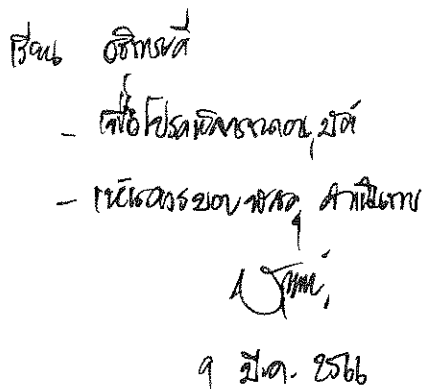 เรียน อธิการบดี
- เพื่อโปรดพิจารณาอนุมัติ
- เห็นควรมอบ พัสดุ ดำเนินการ
9 มี.ค. 2566